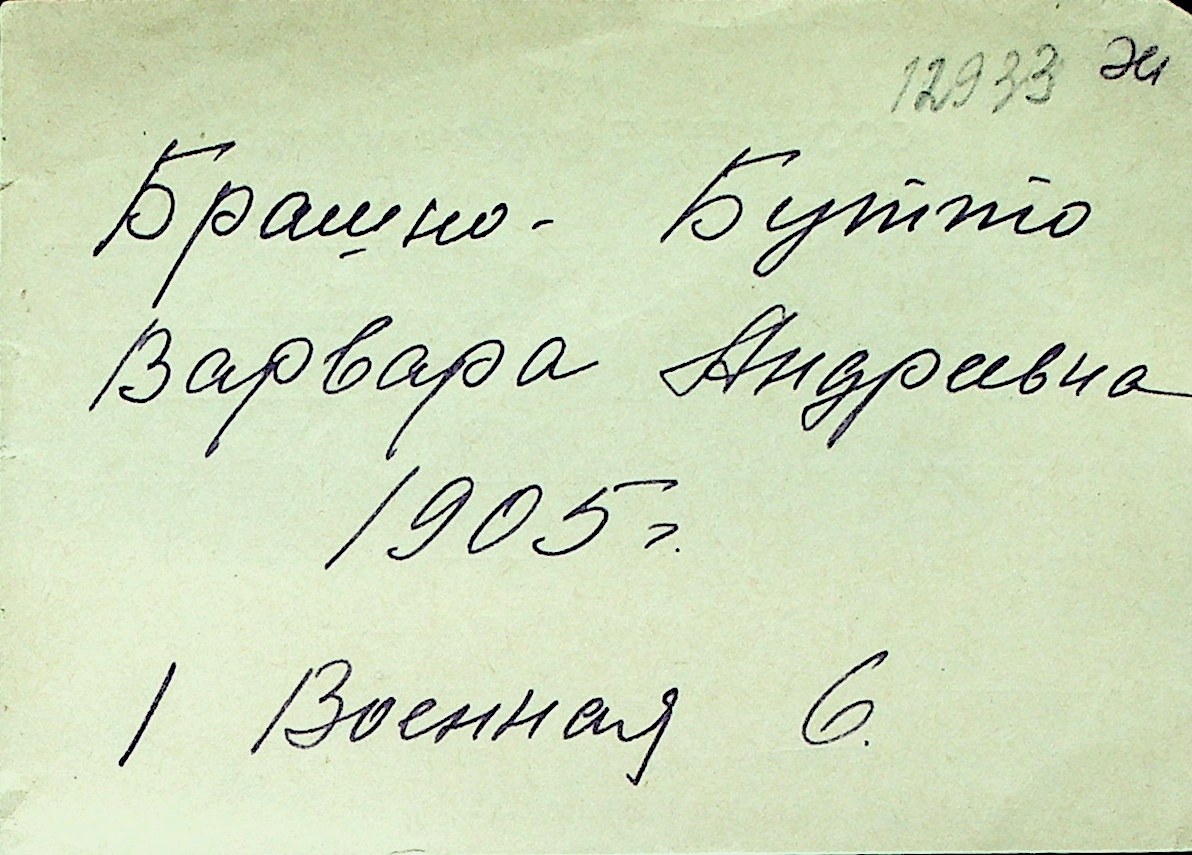 12933 Эк
Брашно- Бутто
Варвара Андреевна
1905 г.
1 Военная 6.